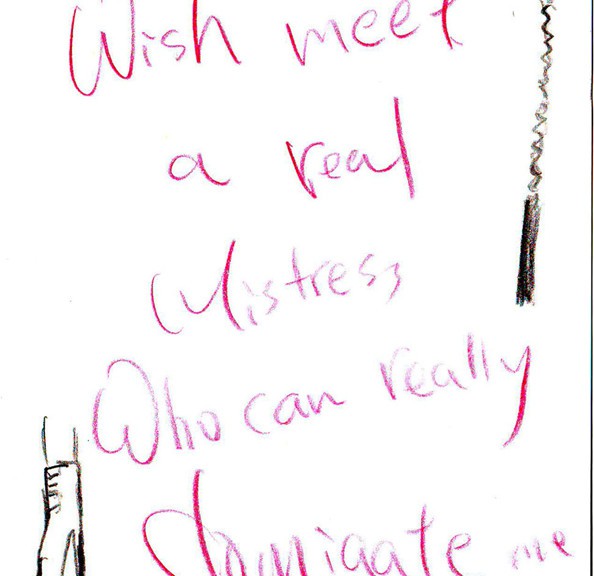 Wish meet
a real
Mistress
Who can really
Dominaate me